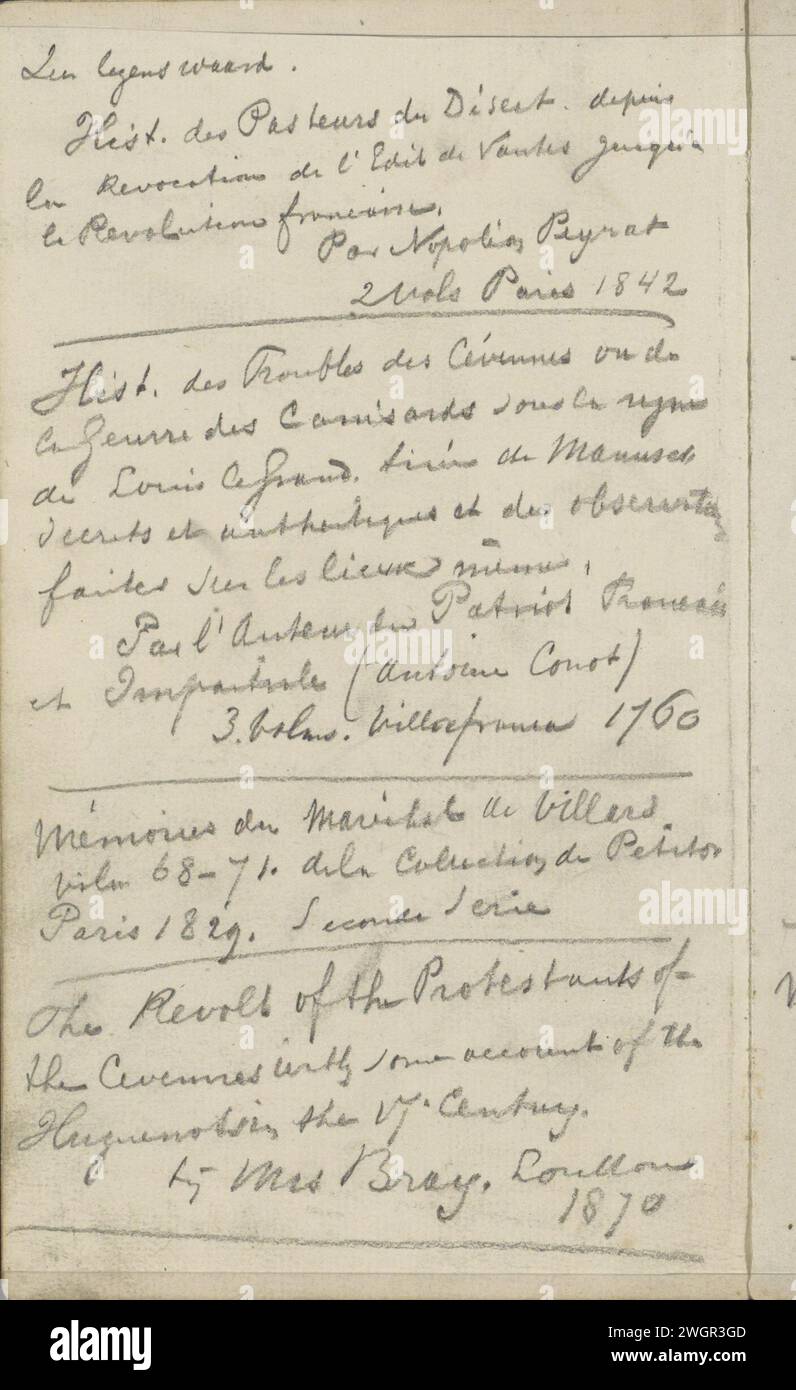 Zeer lezenswaard.
Hist. des Pasteurs du Désert. depuis
la Revocation de l'Edit de Nantes jusqu'a
la Revolution française.
Par Napoléon Peyrat
2 Vols Paris 1842
Hist. des Troubles des Cévennes ou de
la Geurre des Camisards sous le regne
de Louis le Grand. tirée de Manuscr
secrets et authentiques et des observatio
faites sur les lieux même,
Par l'Auteur du Patriot Francais
et Impartiale (Antoine Court)
3. Volms. Villefranca 1760
Mémoires du Maréchal de Villars
vols 68-71. de la Collection de Petitot
Paris 1829. Seconde Serie
The Revolt of the Protestants of
the Cevennes with some account of the
Huguenots in the 17. Century.
by Mrs Bray. London
1870
alamy
Image ID: 2WGR3GD
www.alamy.com